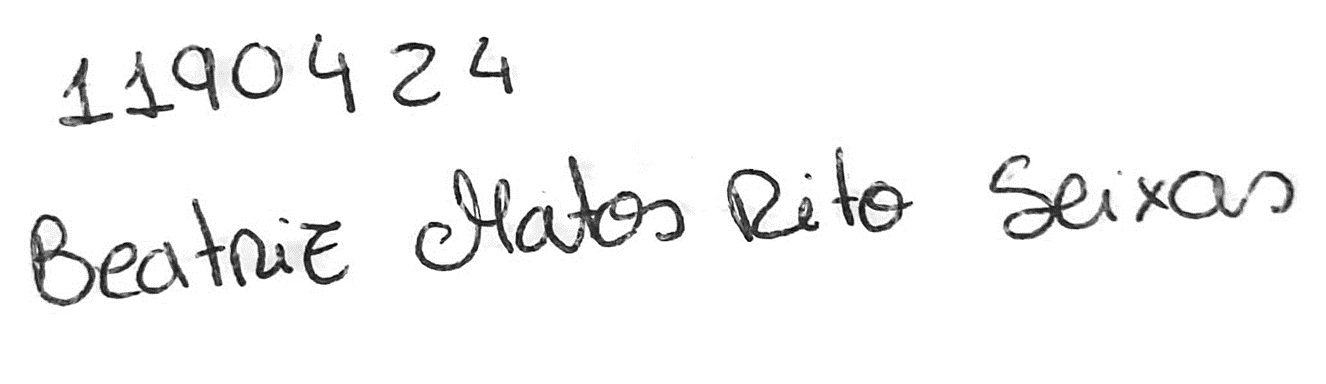 1190424
Beatriz Matos Rito Seixas